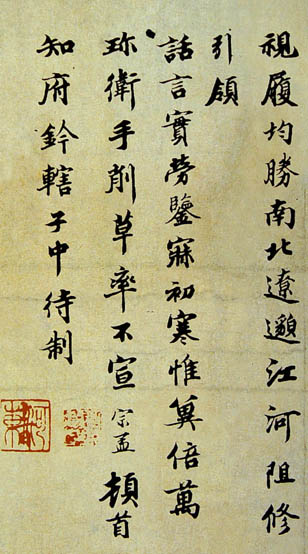 視履均勝南北遼邈江河阻修
引領
話言實勞鑒寐初寒惟兾倍萬
珎衛手削草率不宣 宗孟 頓首
知府鈐轄子中待制